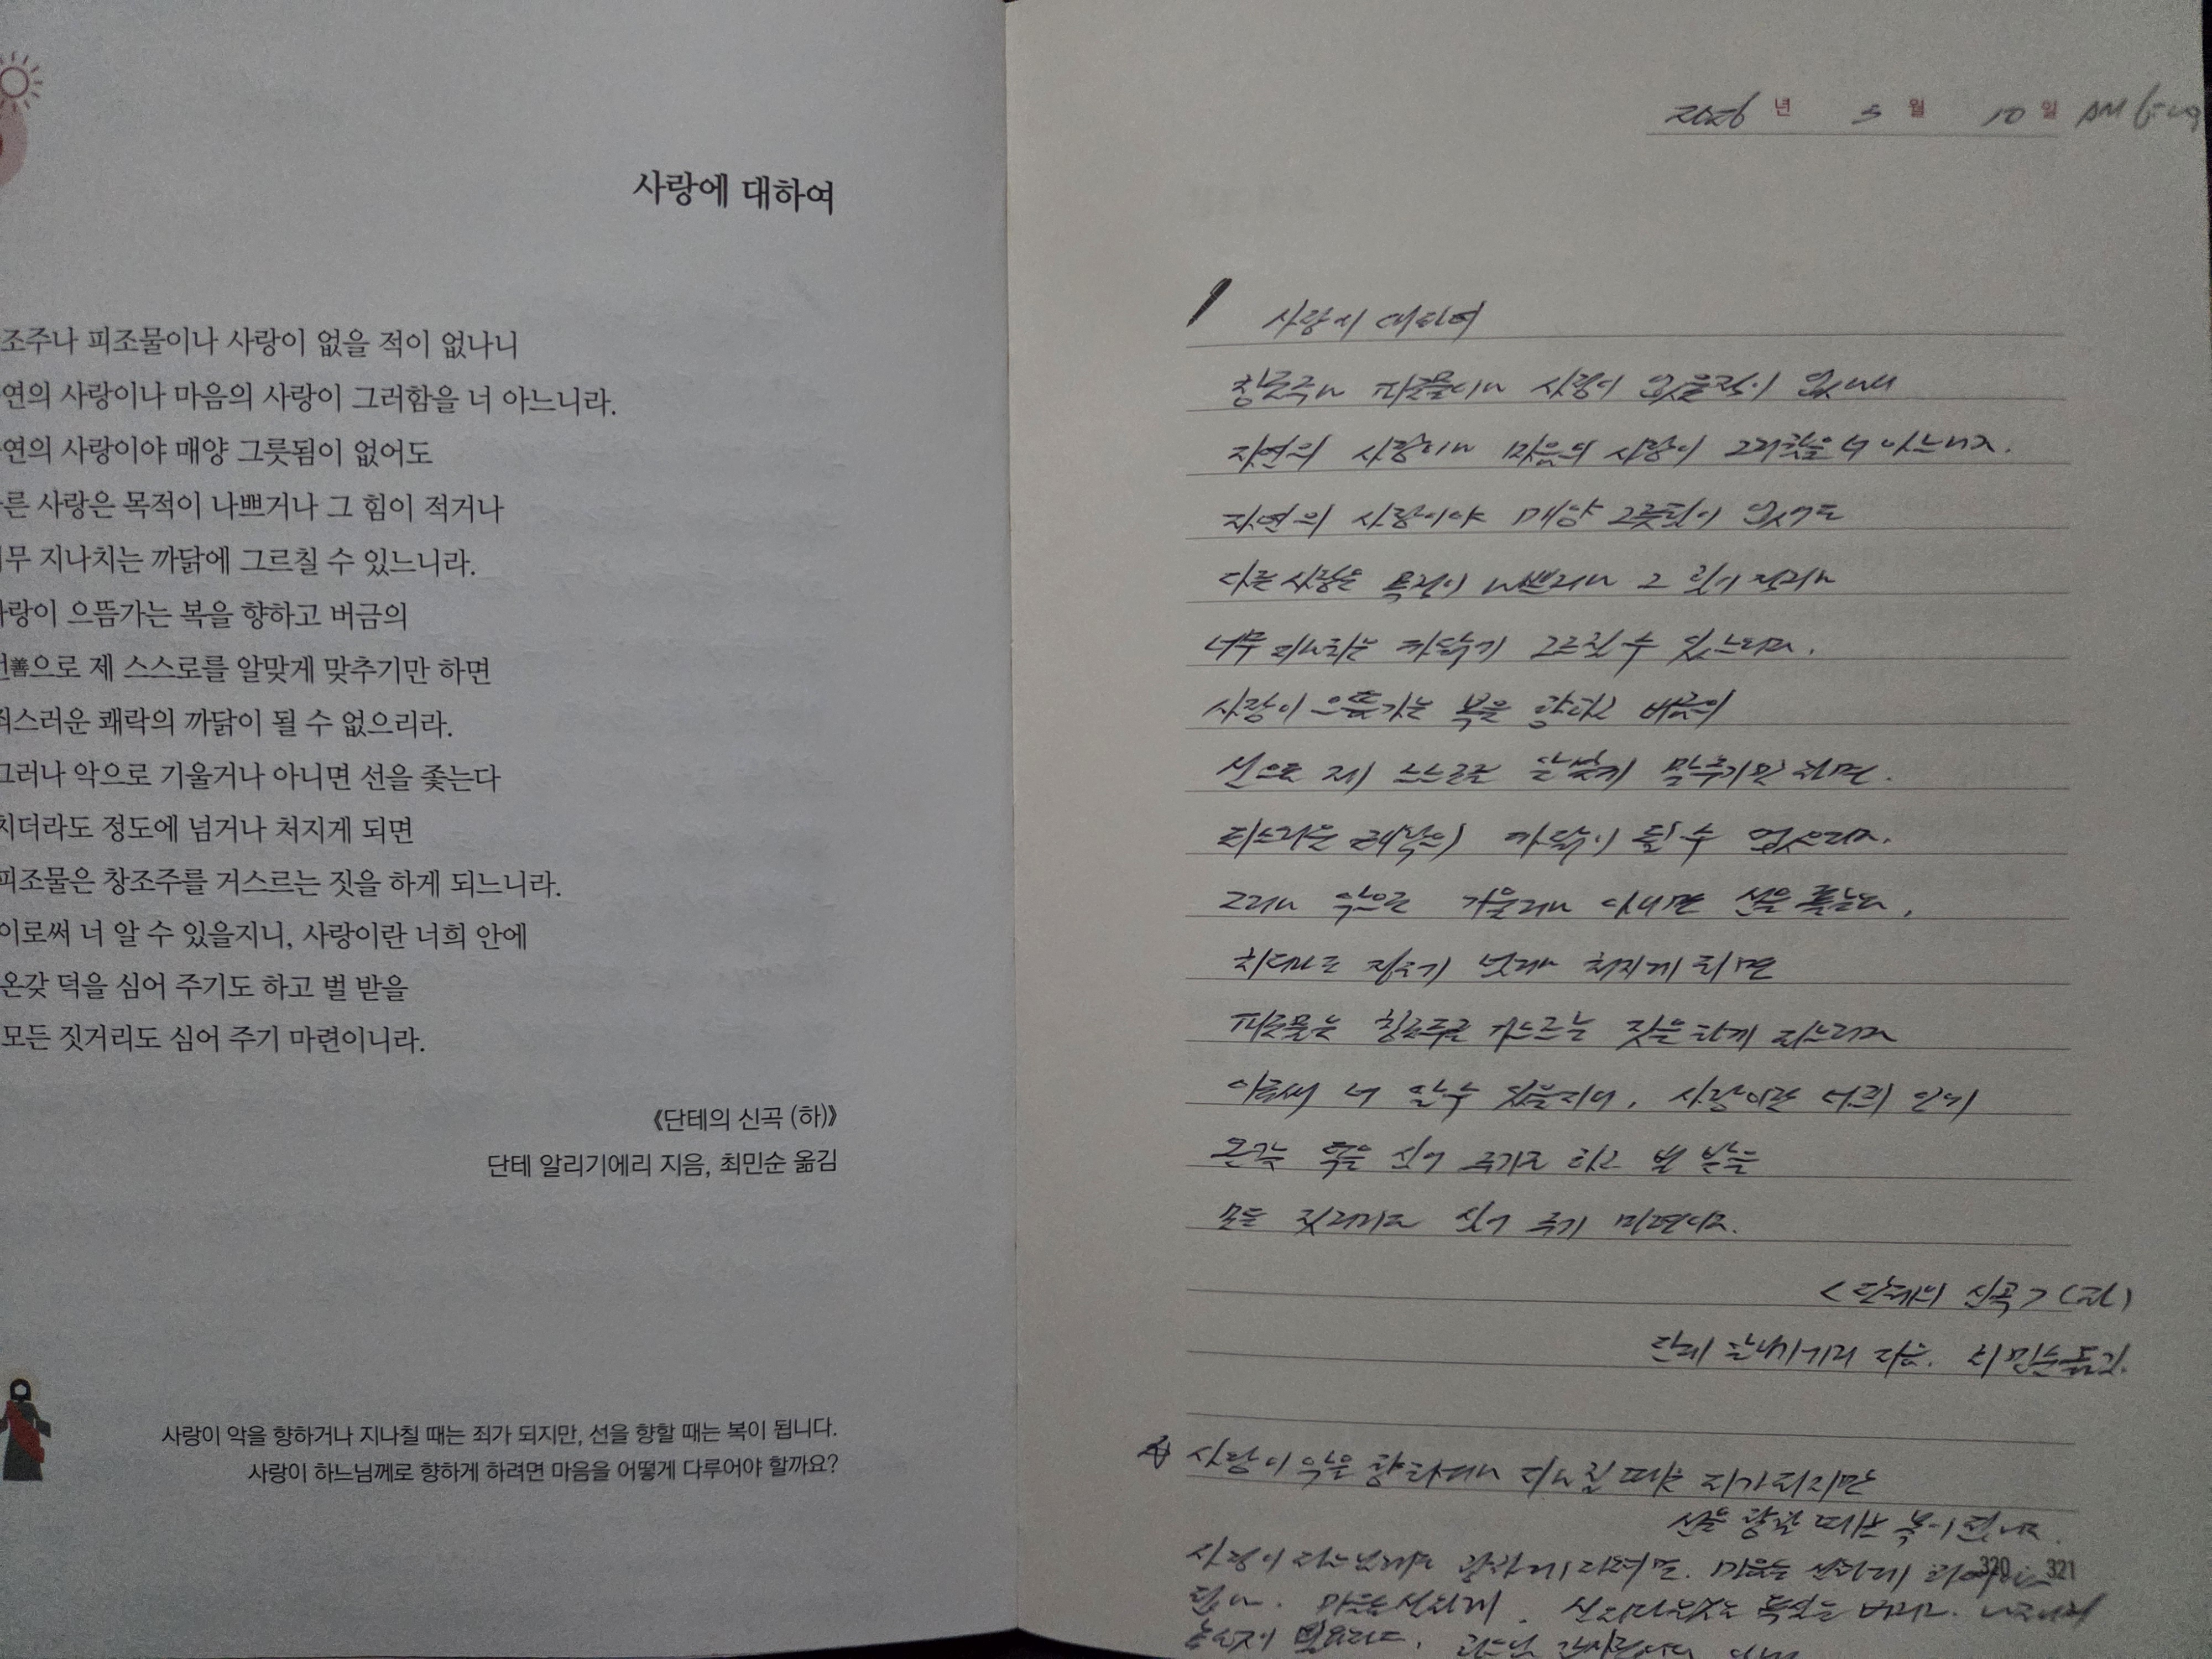 사랑에 대하여
조주나 피조물이나 사랑이 없을 적이 없나니
연의 사랑이나 마음의 사랑이 그러함을 너 아느니라.
연의 사랑이야 매양 그릇됨이 없어도
른 사랑은 목적이 나쁘거나 그 힘이 적거나
무 지나치는 까닭에 그르칠 수 있느니라.
랑이 으뜸가는 복을 향하고 버금의
善으로 제 스스로를 알맞게 맞추기만 하면
스러운 쾌락의 까닭이 될 수 없으리라.
그러나 악으로 기울거나 아니면 선을 좇는다
치더라도 정도에 넘거나 처지게 되면
피조물은 창조주를 거스르는 짓을 하게 되느니라.
이로써 너 알 수 있을지니, 사랑이란 너희 안에
온갖 덕을 심어 주기도 하고 벌 받을
모든 짓거리도 심어 주기 마련이니라.
《단테의 신곡 (하)》
단테 알리기에리 지음, 최민순 옮김
사랑이 악을 향하거나 지나칠 때는 죄가 되지만, 선을 향할 때는 복이 됩니다.
사랑이 하느님께로 향하게 하려면 마음을 어떻게 다루어야 할까요?
2026 년 5 월 10 일 AM
사랑에 대하여
창조주나 피조물이나 사랑이 없을적이 없나니
자연의 사랑이나 마음의 사랑이 그러함을 너 아느니라.
자연의 사랑이야 매양 그릇됨이 없어도
다른 사랑은 목적이 나쁘거나 그 힘이 적거나
너무 지나치는 까닭에 그르칠 수 있느니라.
사랑이 으뜸가는 복을 향하고 버금의
선으로 제 스스로를 알맞게 맞추기만 하면.
죄스러운 쾌락의 까닭이 될 수 없으리라.
그러나 악으로 기울거나 아니면 선을 좇는다,
치더라도 정도에 넘거나 처지게 되면
피조물은 창조주를 거스르는 짓을 하게 되느니라
이로써 너 알 수 있을지니, 사랑이란 너희 안에
온갖 덕을 심어 주기도 하고 벌 받을
모든 짓거리도 심어 주기 마련이니라.
<단테의 신곡> (하)
단테 알리기에리 지음. 최민순 옮김.
사랑이 악을 향하거나 지나칠 때는 죄가 되지만
선을 향할 때는 복이 됩니다.
사랑이 하느님께로 향하게 하려면. 마음을 선하게
마음을 선하게. 버리고.
320 321